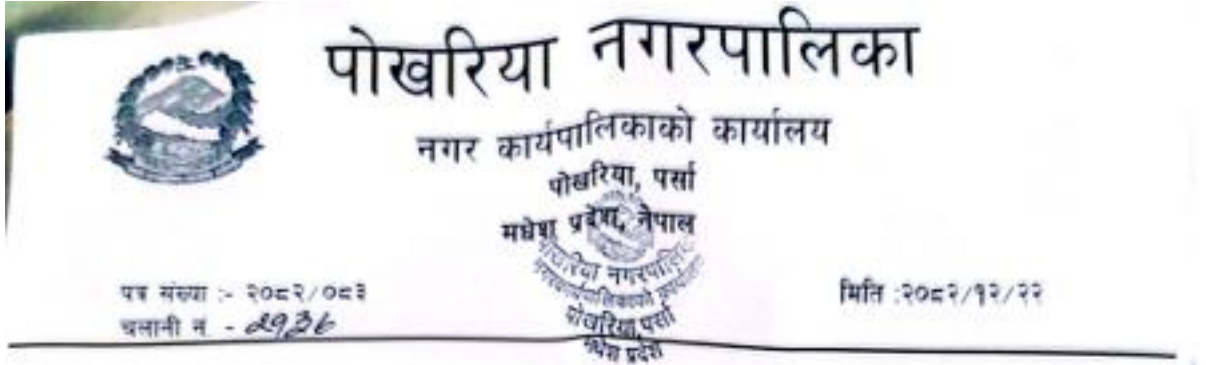 पोखरिया नगरपालिका
नगर कार्यपालिकाको कार्यालय
पोखरिया, पर्सा
मधेश प्रदेश, नेपाल
पत्र संख्या :- २०८२/०८३
मिति :२०८२/१२/२२
चलानी नं -
पोखरिया नगरपालिका
नगरकार्यपालिकाको कार्यालय
पोखरिया,पर्सा
मधेश प्रदेश